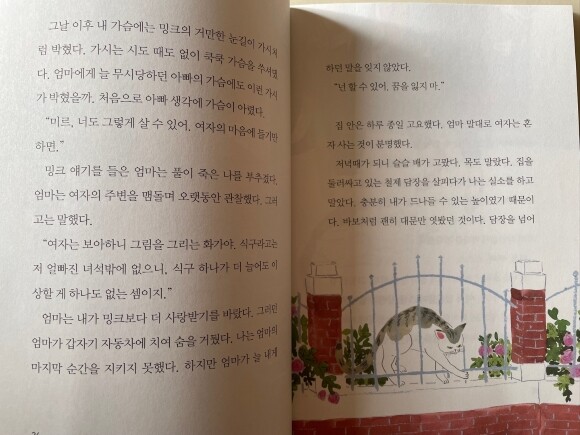 그날 이후 내 가슴에는 밍크의 거만한 눈길이 가시처
럼 박혔다. 가시는 시도 때도 없이 쿡쿡 가슴을 쑤셔댔
다. 엄마에게 늘 무시당하던 아빠의 가슴에도 이런 가시
가 박혔을까. 처음으로 아빠 생각에 가슴이 아렸다.
“미르, 너도 그렇게 살 수 있어. 여자의 마음에 들기만
하면.”
밍크 얘기를 들은 엄마는 풀이 죽은 나를 부추겼다.
엄마는 여자의 주변을 맴돌며 오랫동안 관찰했다. 그러
고는 말했다.
“여자는 보아하니 그림을 그리는 화가야. 식구라고는
저 얼빠진 녀석밖에 없으니, 식구 하나가 더 늘어도 이
상할 게 하나도 없는 셈이지.”
엄마는 내가 밍크보다 더 사랑받기를 바랐다. 그러던
엄마가 갑자기 자동차에 치여 숨을 거뒀다. 나는 엄마의
마지막 순간을 지키지 못했다. 하지만 엄마가 늘 내게
하던 말을 잊지 않았다.
“넌 할 수 있어. 꿈을 잃지 마.”
집 안은 하루 종일 고요했다. 엄마 말대로 여자는 혼
자 사는 것이 분명했다.
저녁때가 되니 슬슬 배가 고팠다. 목도 말랐다. 집을
둘러싸고 있는 철제 담장을 살피다가 나는 실소를 하고
말았다. 충분히 내가 드나들 수 있는 높이였기 때문이
다. 바보처럼 괜히 대문만 엿봤던 것이다. 담장을 넘어